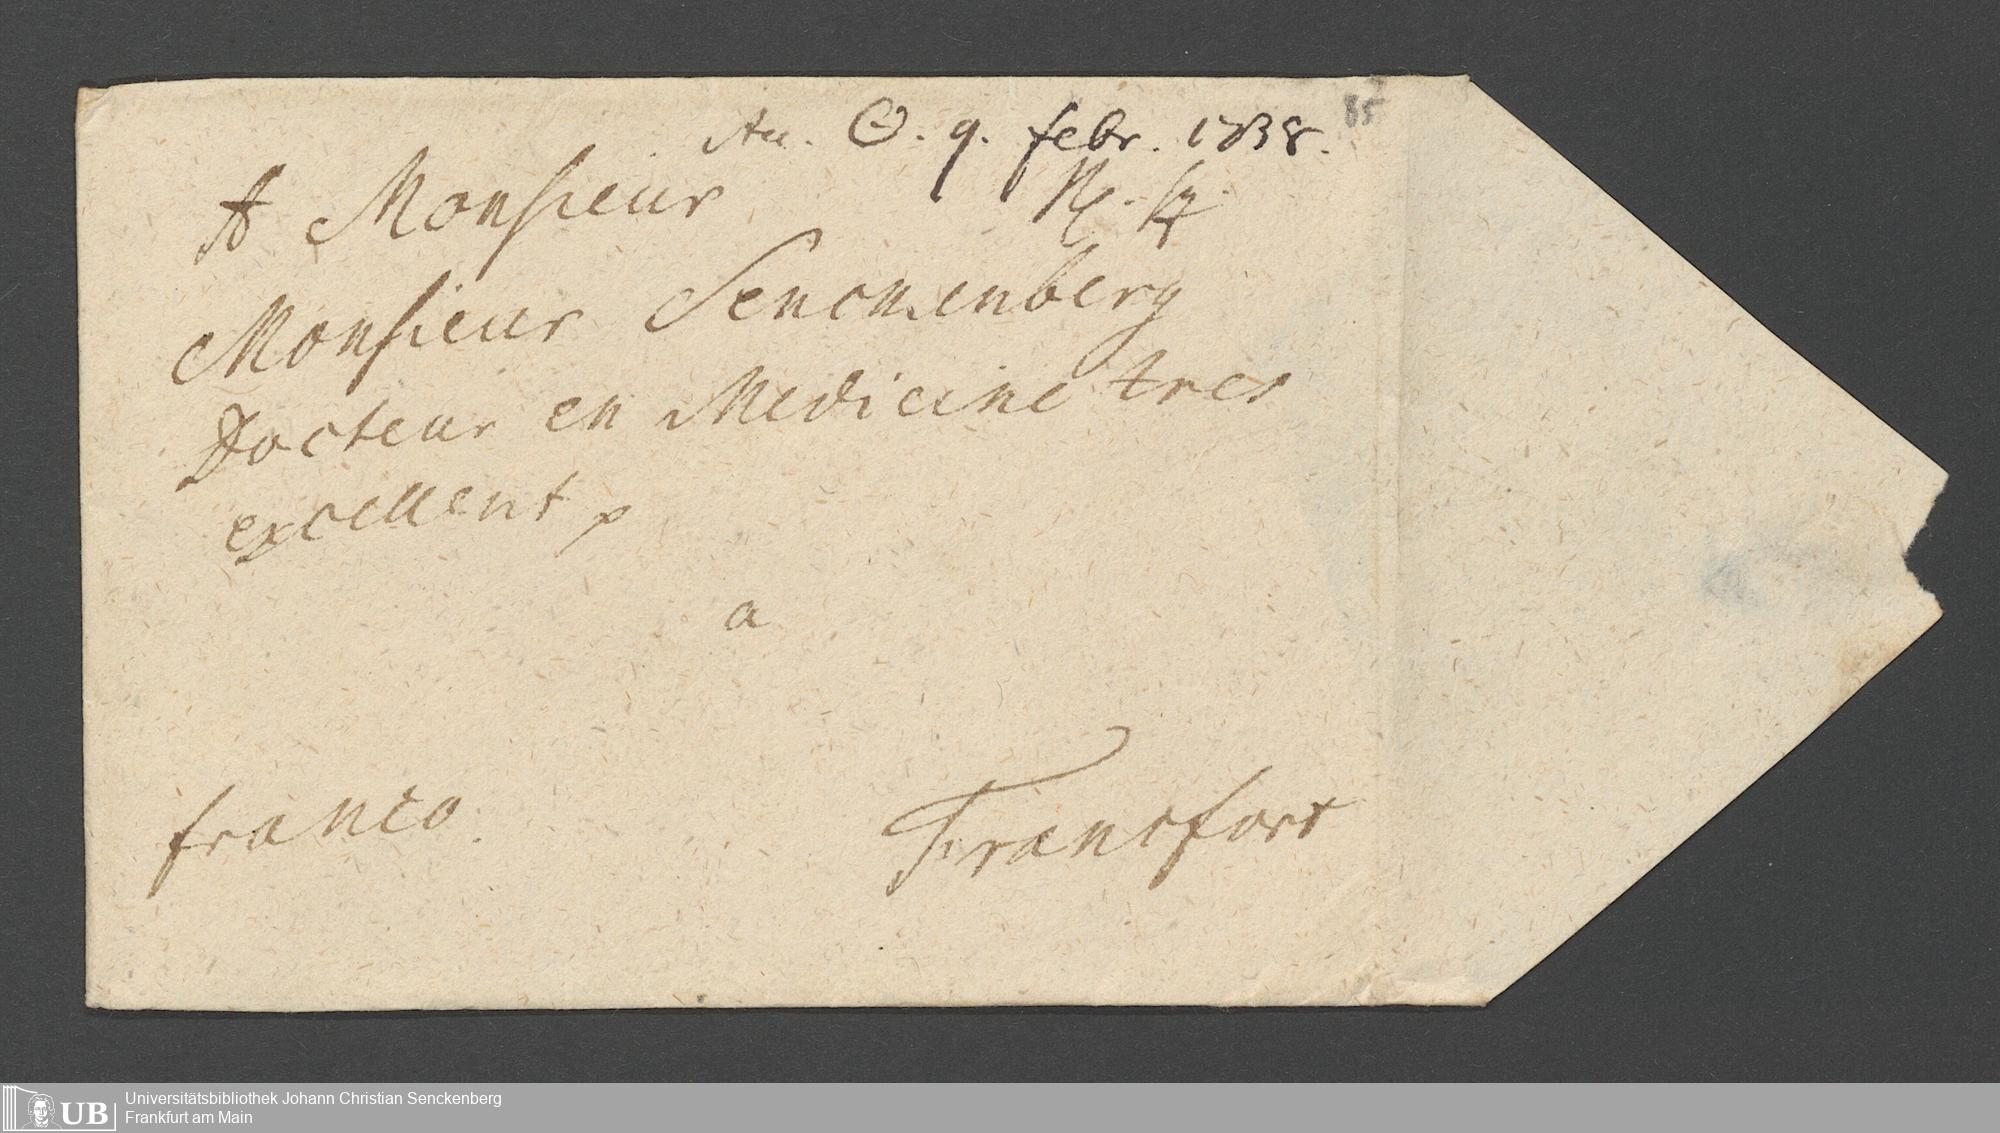 Acc. ☉. 9. febr. 1738.
85
A Monsieur
Monsieur Senckenberg
Docteur en Medicine tres
excellent
a
franco.
Francfort
UB
Universitätsbibliothek Johann Christian Senckenberg
Frankfurt am Main